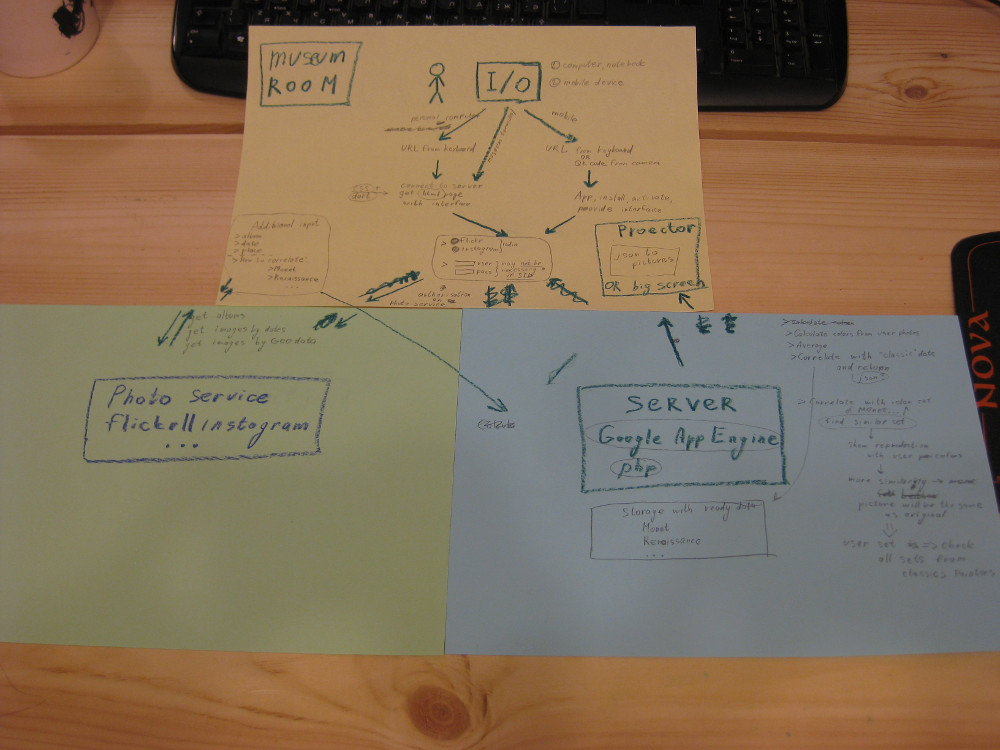 museum
ROOM
I/O
① computer, notebook
② mobile device
personal computer
mobile
URL from keyboard
URL from keyboard
OR
QR code from camera
connect to server
get (html) page
with interface
App, install, activate,
provide interface
Additional input
> album
> date
> place
> how to correlate:
> Monet
> Renaissance
...
> flickr
instagram
> user
pass
may not be
necessary
if SID
authorisation
on
Photo service
Proector
json to
pictures
OR big screen
get albums
get images by dates
get images by GEO data
Photo Service
flickr||instogram
...
SERVER
Google App Engine
php
Storage with ready data
Monet
Renaissance
...
> Calculate colors from user photos
> Average
> Correlate with "classic" data
and return
json
> Correlate with color set
of Monet...
find similar set
show reproduction
with user pen colors
more similarly → more
picture will be the same
as original
user set => check
all sets from
classics painters
NOVA